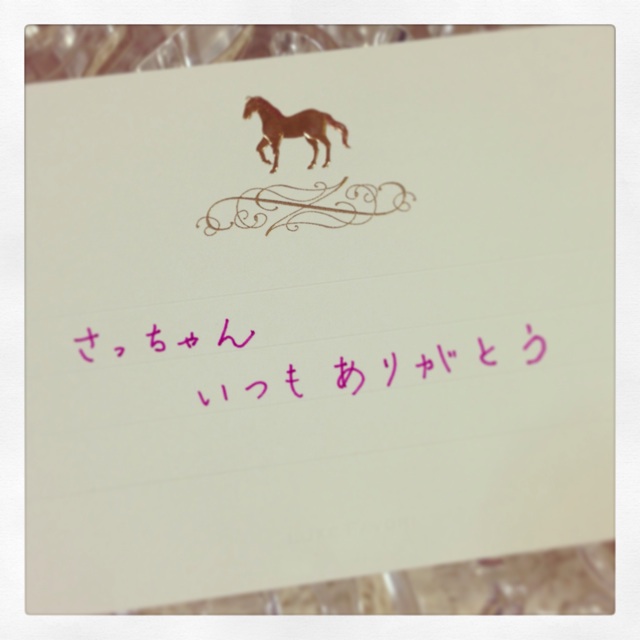 さっちゃん
いつもありがとう